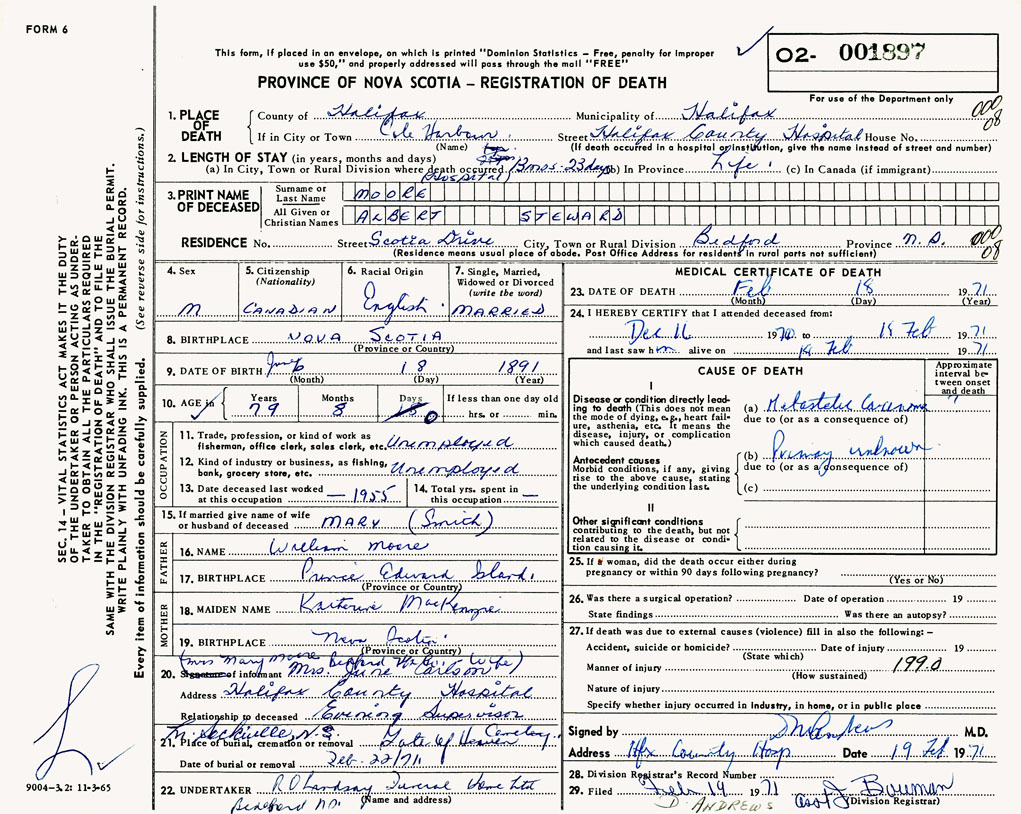 FORM 6
This form, if placed in an envelope, on which is printed "Dominion Statistics – Free, penalty for improper
use $50," and properly addressed will pass through the mail "FREE"
PROVINCE OF NOVA SCOTIA – REGISTRATION OF DEATH
02- 001897
For use of the Department only
1. PLACE OF DEATH
County of Halifax Municipality of Halifax 000
08
If in City or Town Cole Harbour Street Halifax County Hospital House No.
(Name) (If death occurred in a hospital or institution, give the name instead of street and number)
2. LENGTH OF STAY (in years, months and days)
(a) In City, Town or Rural Division where death occurred mos. 23 days (b) In Province Life. (c) In Canada (if immigrant)
(Hospital)
3. PRINT NAME OF DECEASED
Surname or Last Name MOORE
All Given or Christian Names ALBERT STEWARD
RESIDENCE No. Street Scotia Drive City, Town or Rural Division Bedford Province N.S. 000
08
(Residence means usual place of abode. Post Office Address for residents in rural parts not sufficient)
4. Sex M
5. Citizenship (Nationality) CANADIAN
6. Racial Origin English
7. Single, Married, Widowed or Divorced (write the word) MARRIED
8. BIRTHPLACE NOVA SCOTIA
(Province or Country)
9. DATE OF BIRTH 18 1891
(Month) (Day) (Year)
10. AGE in Years Months Days If less than one day old
79 8 0 hrs. or min.
OCCUPATION
11. Trade, profession, or kind of work as
fisherman, office clerk, sales clerk, etc. Unemployed
12. Kind of industry or business, as fishing,
bank, grocery store, etc. Unemployed
13. Date deceased last worked
at this occupation — 1955
14. Total yrs. spent in
this occupation —
15. If married give name of wife
or husband of deceased MARY (Smith)
FATHER
16. NAME William Moore
17. BIRTHPLACE Prince Edward Island.
(Province or Country)
MOTHER
18. MAIDEN NAME Katherine MacKenzie
19. BIRTHPLACE Nova Scotia
(Province or Country)
(Mrs Mary Moore Bedford Wife)
20. Signature of informant Mrs. June Carlson
Address Halifax County Hospital
Relationship to deceased Evening Supervisor
Sackville, N.S.
21. Place of burial, cremation or removal Gate of Heaven Cemetery
Date of burial or removal Feb. 22/71
22. UNDERTAKER Funeral Home Ltd
(Name and address)
MEDICAL CERTIFICATE OF DEATH
23. DATE OF DEATH Feb 18 1971
(Month) (Day) (Year)
24. I HEREBY CERTIFY that I attended deceased from:
Dec 16 1970 to 18 Feb 1971
and last saw him alive on Feb 1971
CAUSE OF DEATH
Approximate interval between onset and death
I
Disease or condition directly leading to death (This does not
mean the mode of dying, e.g., heart failure, asthenia, etc. It means the
disease, injury, or complication
which caused death.)
(a) Metastatic Carcinoma ?
due to (or as a consequence of)
Antecedent causes
Morbid conditions, if any, giving
rise to the above cause, stating
the underlying condition last.
(b) Primary unknown
due to (or as a consequence of)
(c)
II
Other significant conditions
contributing to the death, but not
related to the disease or condition causing it.
25. If a woman, did the death occur either during
pregnancy or within 90 days following pregnancy?
(Yes or No)
26. Was there a surgical operation? Date of operation 19
State findings Was there an autopsy?
27. If death was due to external causes (violence) fill in also the following: –
Accident, suicide or homicide? Date of injury 19
(State which)
Manner of injury 199.0
(How sustained)
Nature of injury
Specify whether injury occurred in industry, in home, or in public place
Signed by M.D.
Address Hfx County Hosp Date 19 Feb 1971
28. Division Registrar's Record Number
29. Filed Feb 19 1971 J. Bowman
D. ANDREWS (Division Registrar)
SEC. 14 – VITAL STATISTICS ACT MAKES IT THE DUTY
OF THE UNDERTAKER OR PERSON ACTING AS UNDERTAKER TO OBTAIN ALL THE PARTICULARS REQUIRED
IN THE "REGISTRATION OF DEATH" AND TO FILE THE
SAME WITH THE DIVISION REGISTRAR WHO SHALL ISSUE THE BURIAL PERMIT.
WRITE PLAINLY WITH UNFADING INK. THIS IS A PERMANENT RECORD.
Every item of information should be carefully supplied. (See reverse side for instructions.)
9004-3.2: 11-3-65